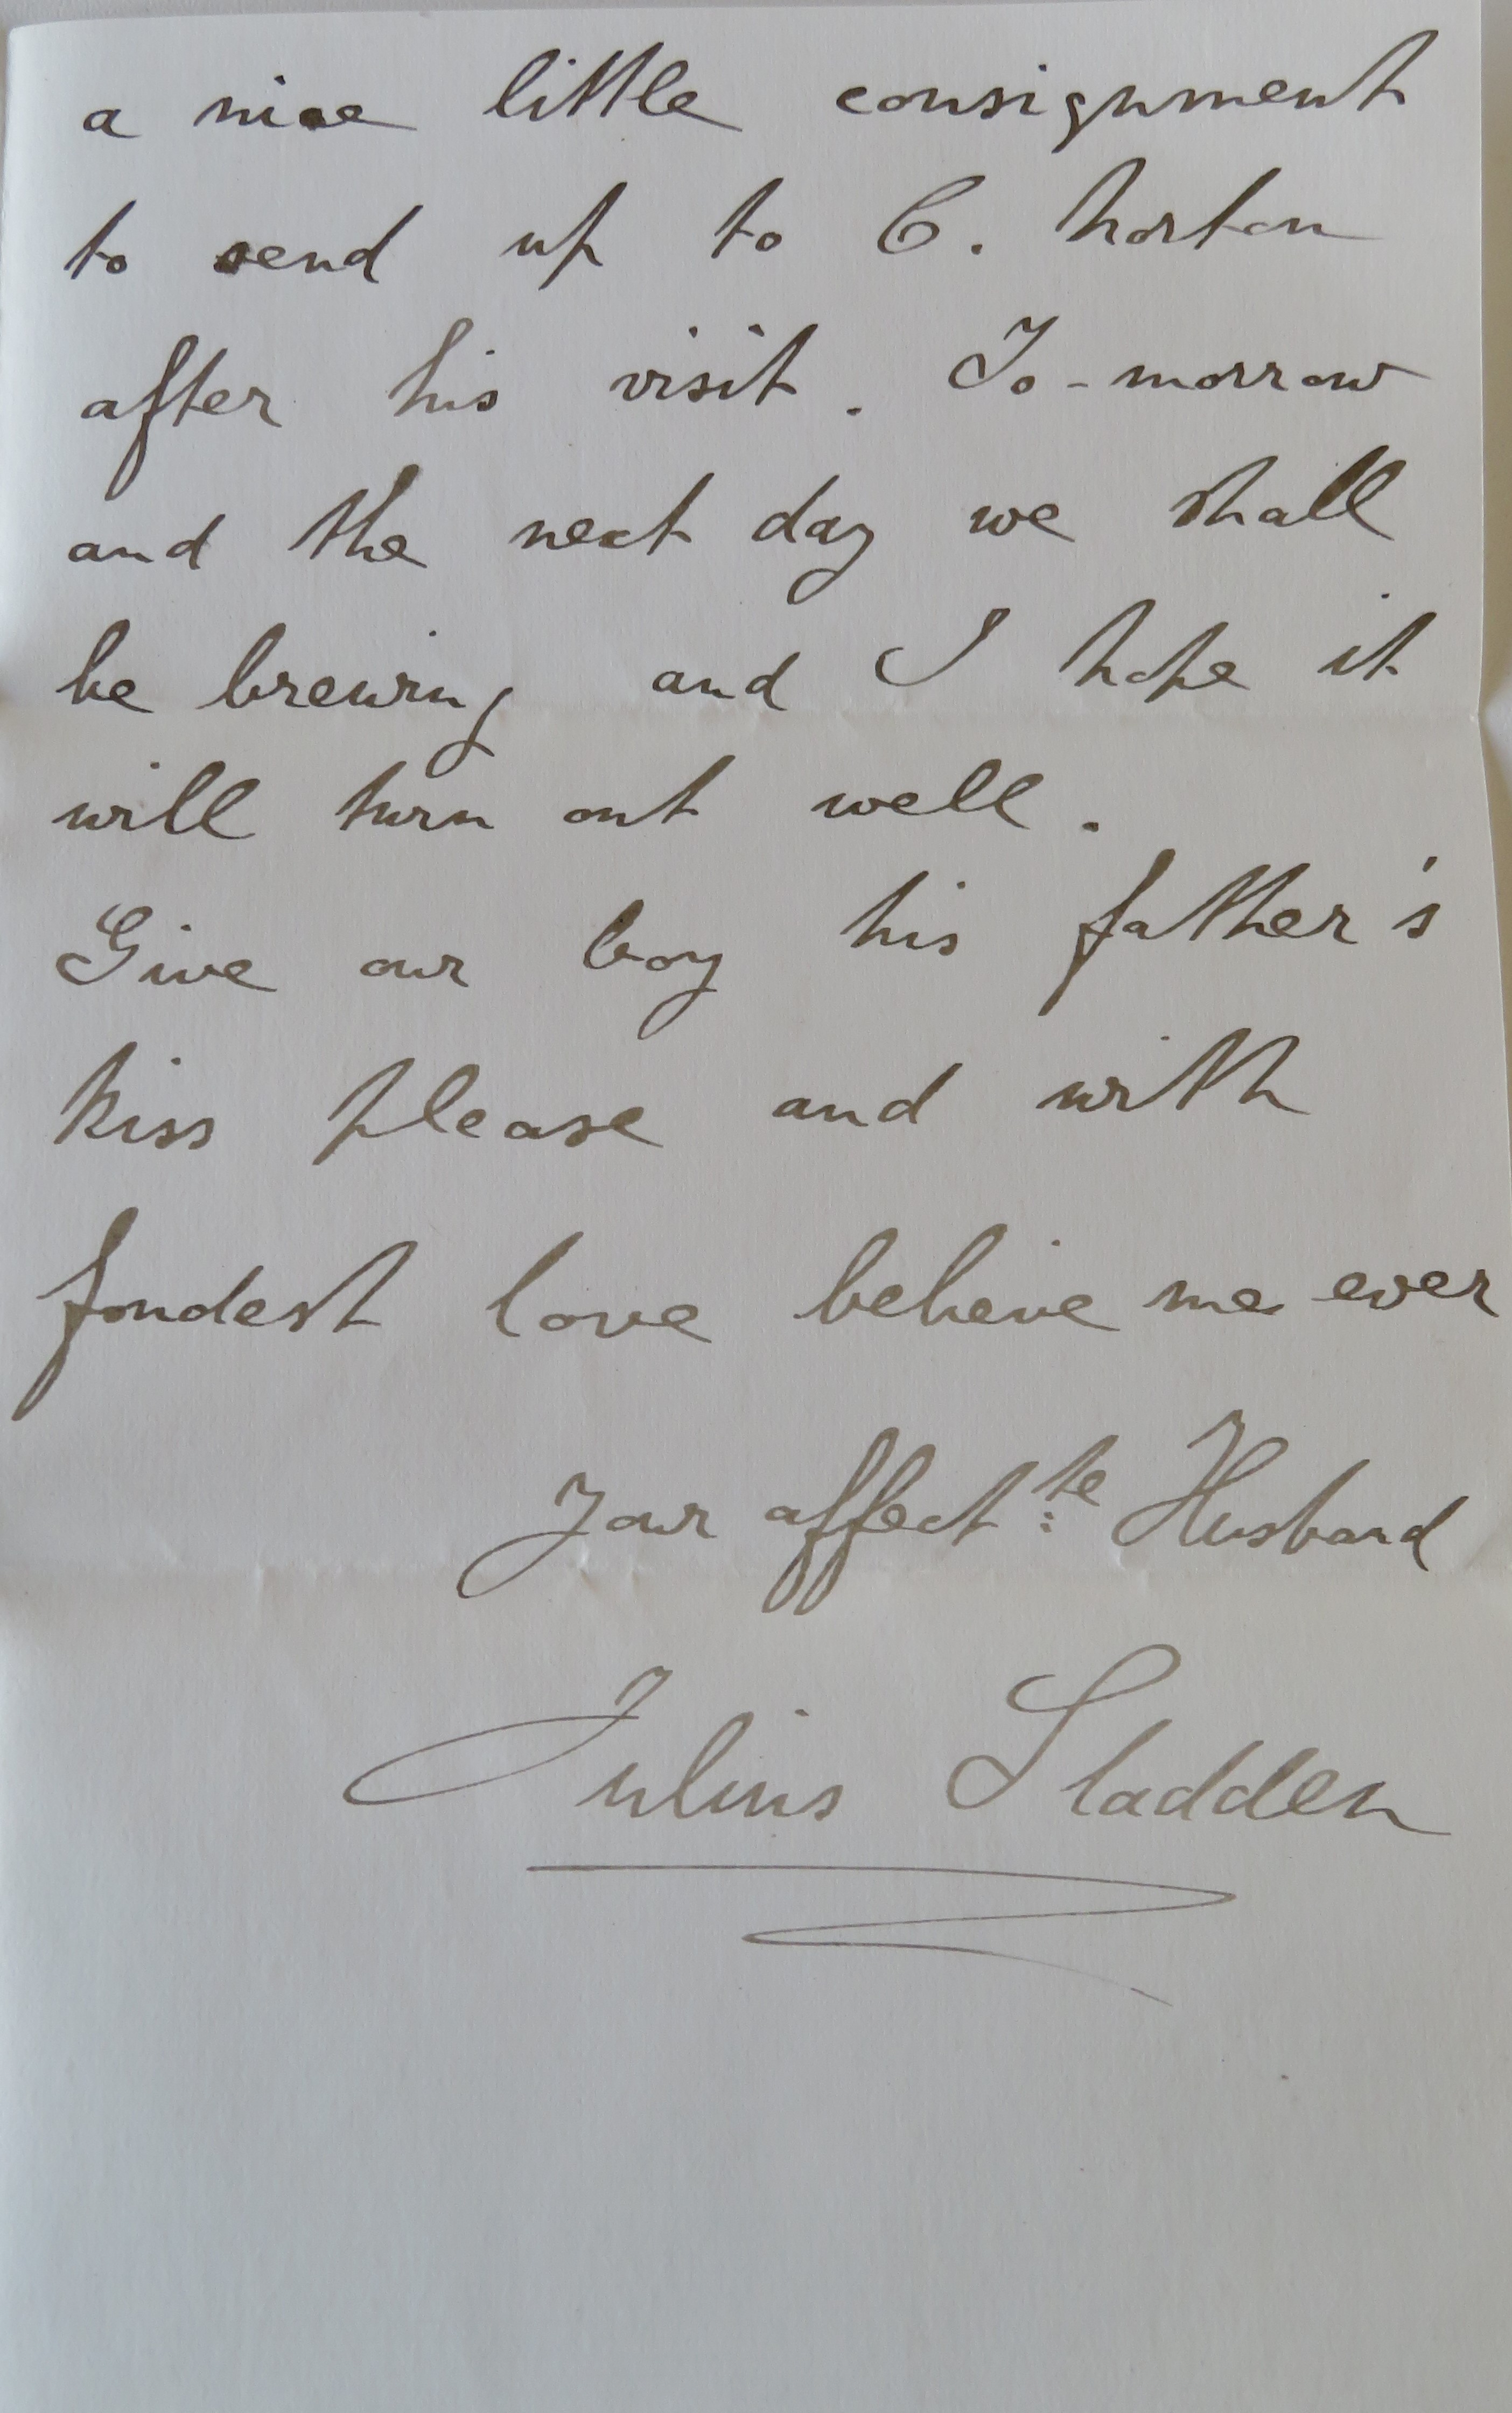 a nice little consignment
to send up to C. Norton
after his visit. To-morrow
and the next day we shall
be brewing and I hope it
will turn out well.
Give our boy his father's
kiss please and with
fondest love believe me ever
Your affect:te Husband
Julius Sladden